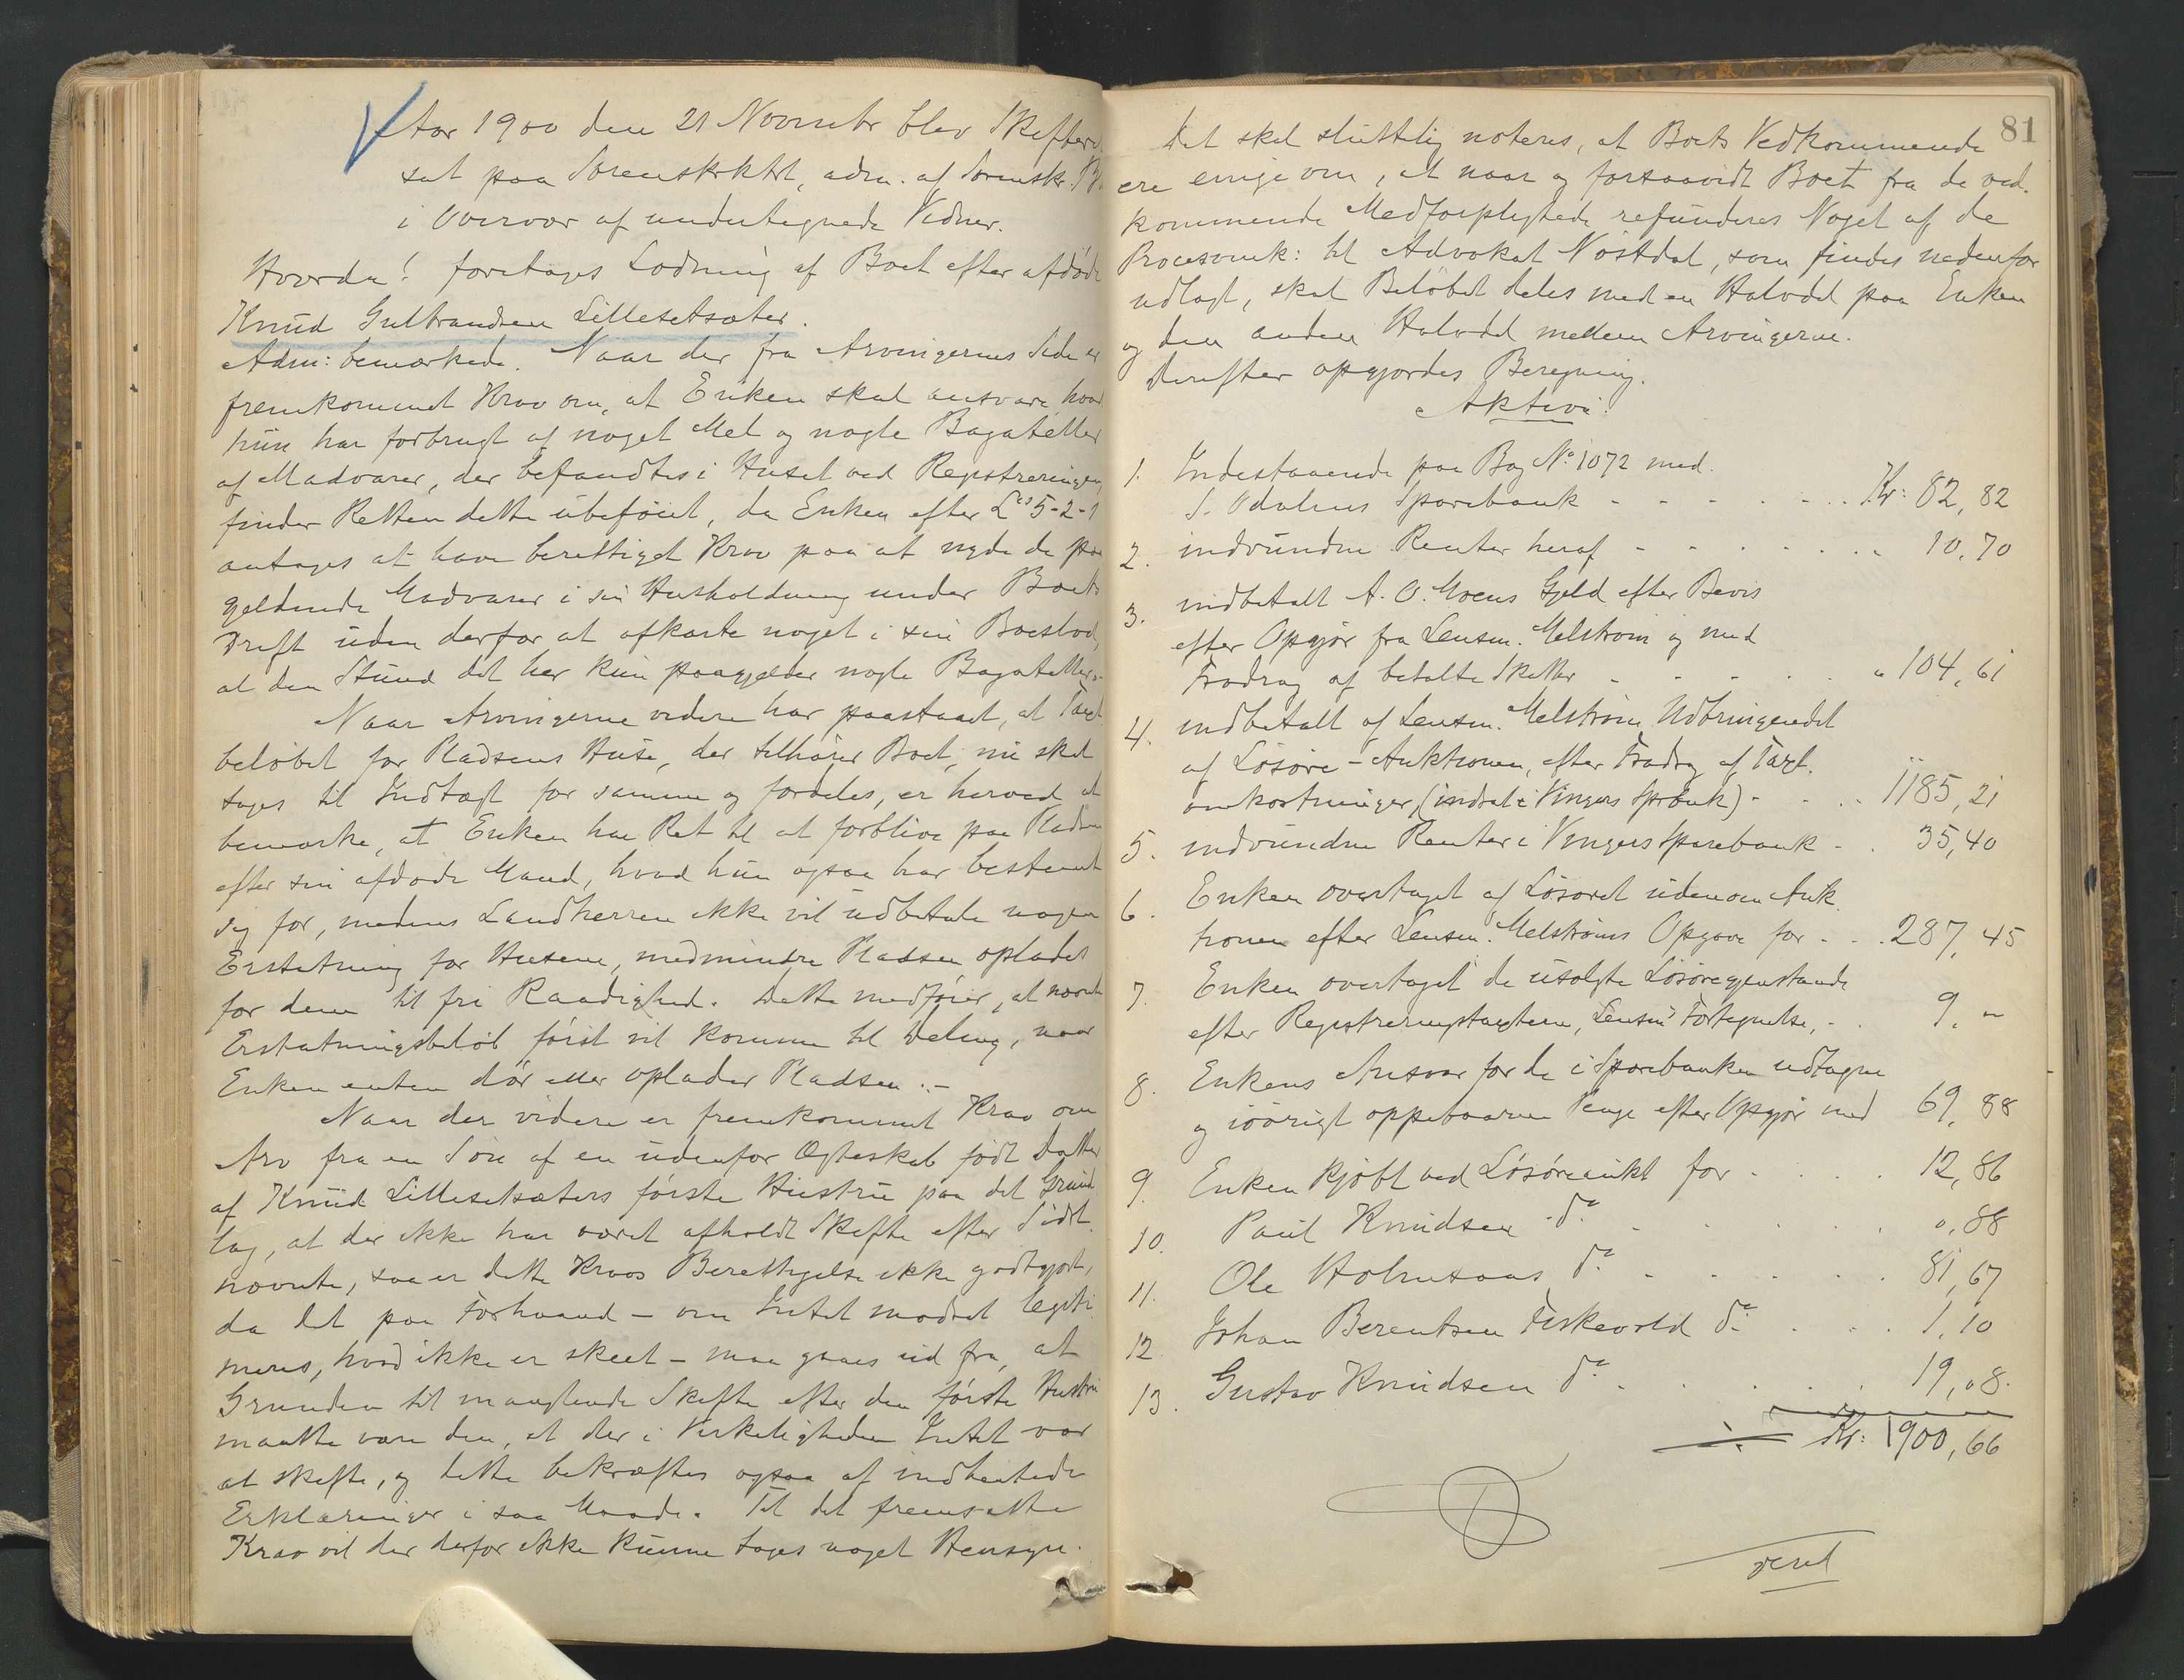 Aar 1900 den 21 Novmbr blev Skifteret
sat paa Sorenskrktrt, adm. af Sorenskr.
i Overvær af undertegnede Vidner.
Hvorda! foretages Lodning af Boet efter afdöde
Knud Gulbrandsen Lillesetsæter.
Adm: bemærkede. Naar der fra Arvingernes Side er
fremkommet Krav om, at Enken skal ansvare, hvad
hun har forbrugt af noget Mel og nogle Bagateller
af Madvarer, der befandtes i Huset ved Registreringen,
finder Retten dette ubeföiet, da Enken efter L's 5-2-1
antages at have berettiget Krav paa at nyde de paa
gjeldende Madvarer i sin Husholdning under Boets
Drift uden derfor at afkorte noget i sin Boeslod,
al den Stund det her kun paagjælder nogle Bagateller.-
Naar Arvingerne videre har paastaaet, at Taxt
belöbet for Pladsens Huse, der tilhörer Boet, nu skal
tages til Indtægt for samme og fordeles, er herved at
bemærke, at Enken har Ret til at forblive paa Pladsen
efter sin afdöde Mand, hvad hun ogsaa har bestemt
sig for, medens Landherren ikke vil udbetale nogen
Erstatning for Husene, medmindre Pladsen oplades
for dem til fri Raadighed. Dette medförer, at nævnte
Erstatningsbelöb först vil komme til Deling, naar
Enken enten dör eller oplader Pladsen.-
Naar der videre er fremkommet Krav om
Arv fra en Sön af en udenfor Ægteskab född Datter
af Knud Lillesetsæters förste Hustru paa det Grund
lag, at der ikke har været afholdt Skifte efter Sidst
nævnte, saa er dette Kravs Berettigelse ikke godtgjort,
da det paa Forhaand - om Intet modsat legiti
meres, hvad ikke er skeet - maa gaaes ud fra, at
Grunden til manglende Skifte efter den förste Hustru
maatte være den, at der i Virkeligheden Intet var
at skifte, og dette bekræftes ogsaa af indhentede
Erklæringer i saa Maade. Til det fremsatte
Krav vil der derfor ikke kunne tages noget Hensyn.
81
Det skal sluttelig noteres, at Boets Vedkommende
ere enige om, at naar og forsaavidt Boet fra de ved-
kommende Medforpligtede refunderes Noget af de
Procesomk: til Advokat Nöstdal, som findes nedenfor
udlagt, skal Belöbet deles med en Halvdel paa Enken
og den anden Halvdel mellem Arvingerne.
Derefter opgjordes Beregning.
Aktiva:
1. Indestaaende paa Bog No 1072 med
S. Odalens Sparebank - - - - - - Kr: 82,82
2. indvundne Renter heraf - - - - - - " 10,70
3. indbetalt A. O. Moens Gjeld efter Bevis
efter Opgjör fra Lensm. Melström og med
Fradrag af betalte Skatter - - - - - " 104,61
4. indbetalt af Lensm. Melström Udbringendet
af Lösöre-Auktionen, efter Fradrag af Taxt.
omkostninger, (indsat i Vingers Sprbnk) - - - 1185,21
5. indvundne Renter i Vingers Sparebank - . 35,40
6. Enken overtaget af Lösöret udenom Auk
tionen efter Lensm. Melströms Opgave for - . . 287,45
7. Enken overtaget de usolgte Lösöregjenstande
efter Registreringstaxterne, Lensm's Fortegnelse, - . 9, "
8. Enkens Ansvar for de i Sparebanken udtagne
og iövrigt oppebaarne Penge efter Opgjör med 69,88
9. Enken kjöbt ved Lösöreaukt for - . . . 12,86
10. Paul Knudsen do . . . . . 0,88
11. Ole Holmsaas do - . . . . 81,67
12. Johan Berentsen Fiskevold do . . . 1,10
13. Gustav Knudsen do - . . . . 19,08.
Kr: 1900,66